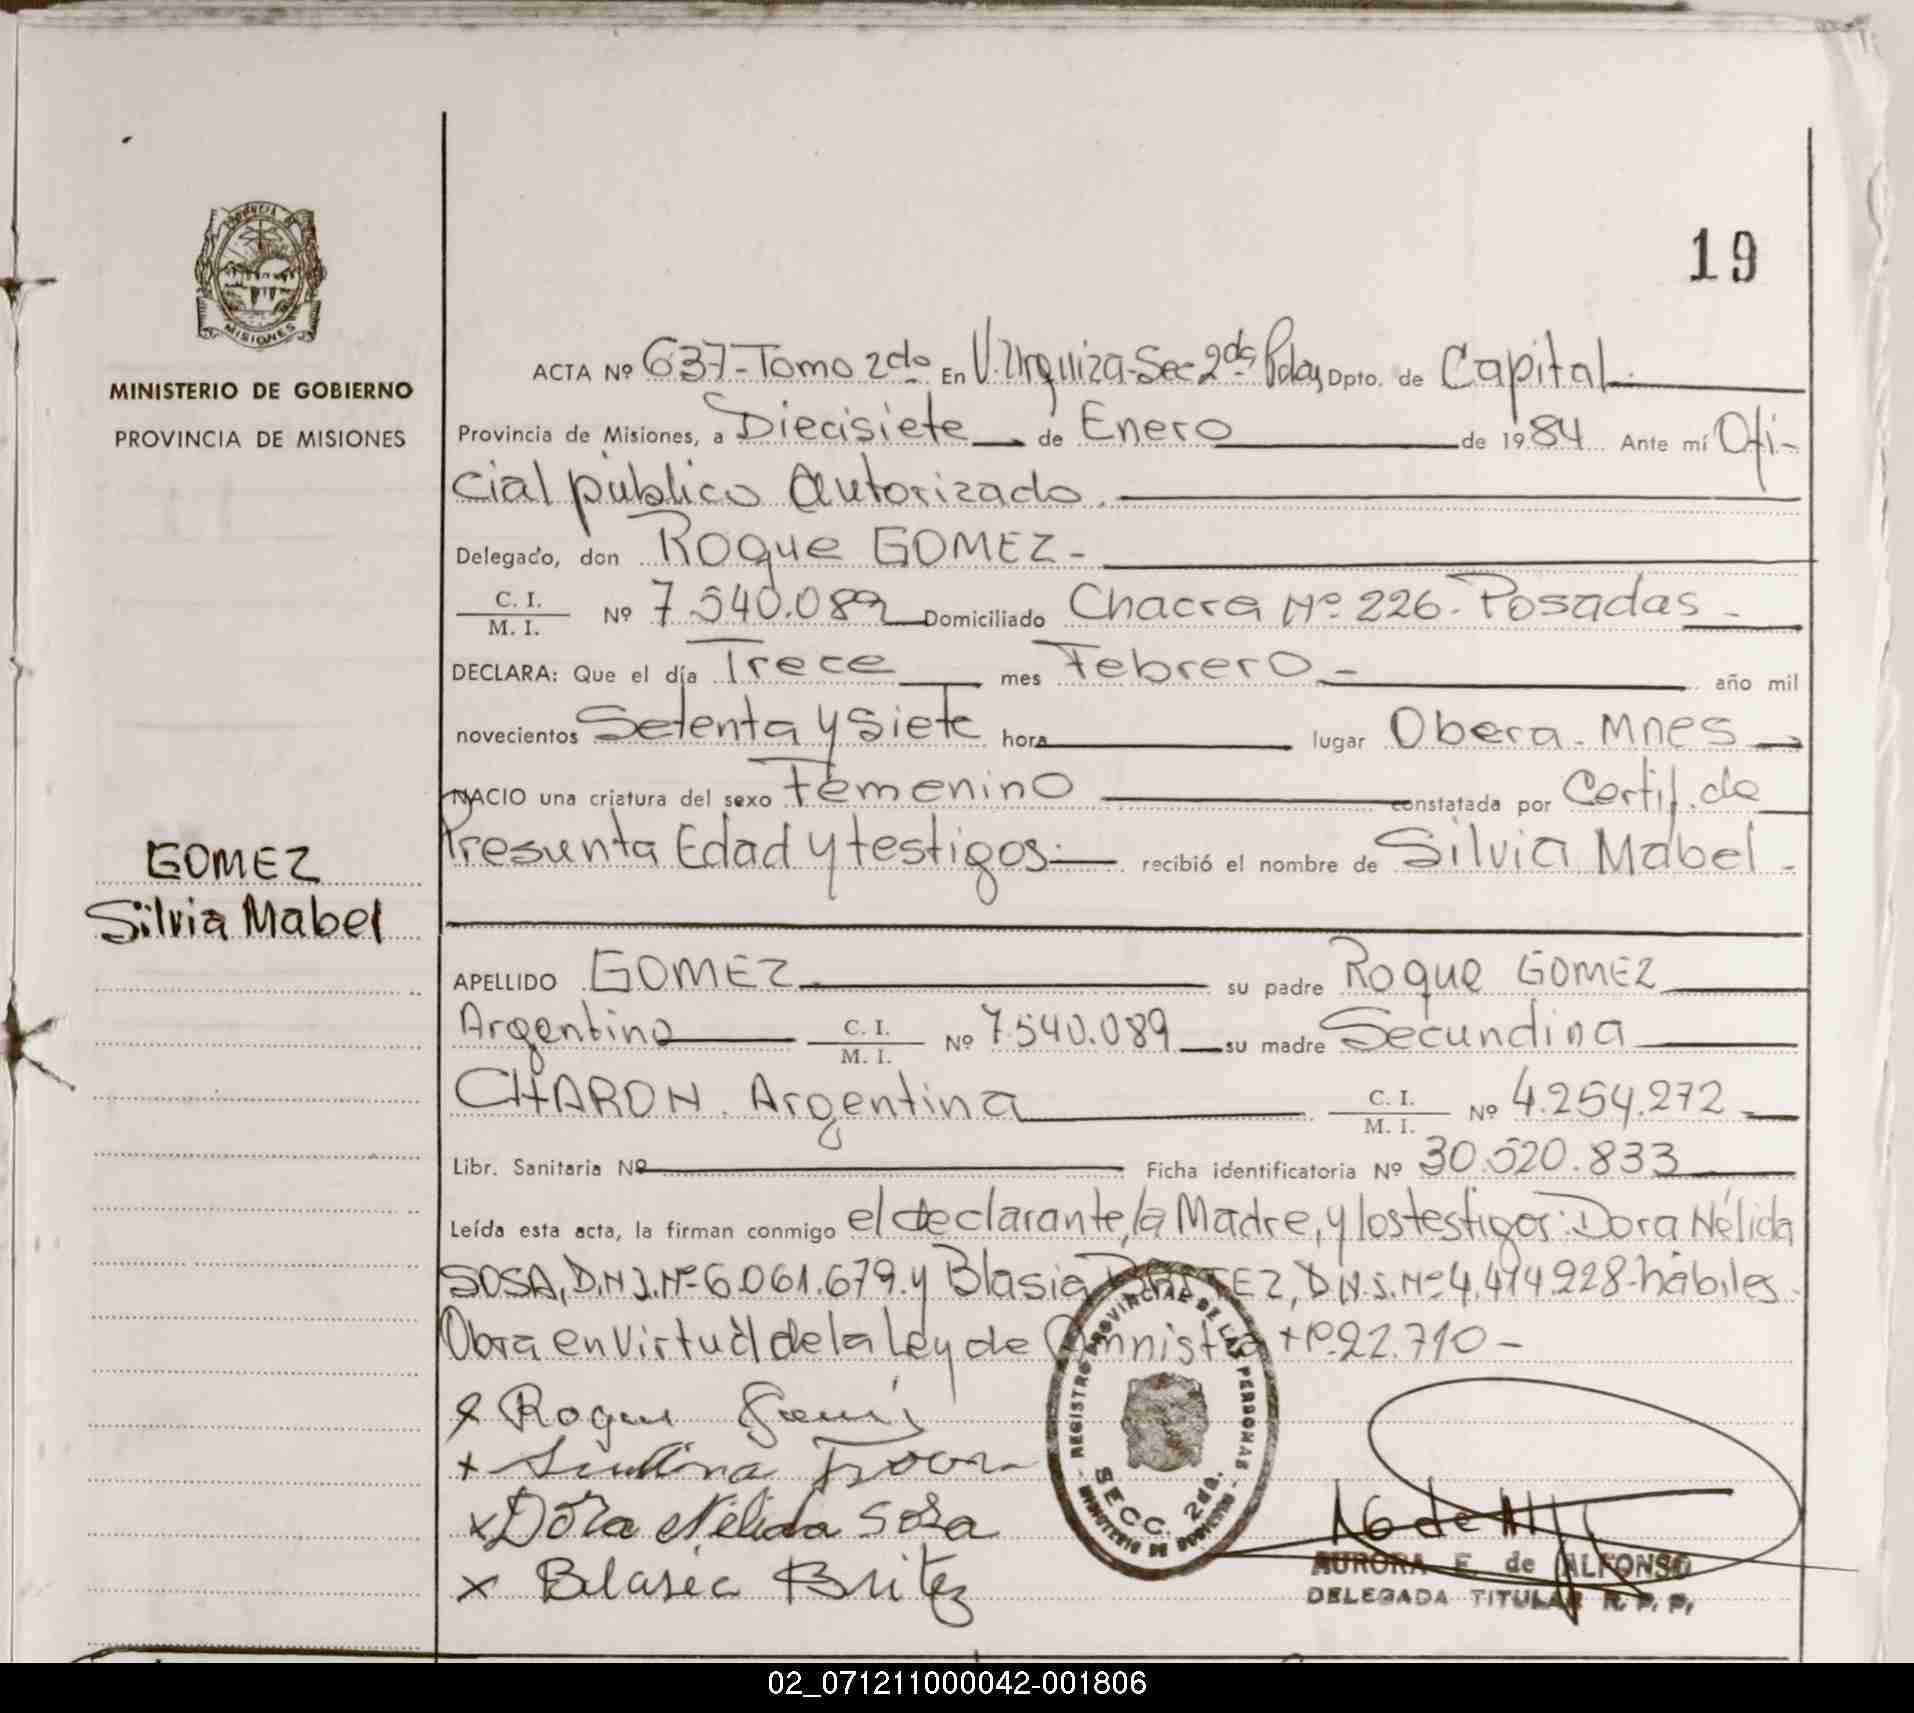 PROVINCIA DE
MISIONES
MINISTERIO DE GOBIERNO
PROVINCIA DE MISIONES
19
ACTA Nº 637-Tomo 2do En V. Urquiza-Sec 2da Pdas, Dpto. de Capital.
Provincia de Misiones, a Diecisiete de Enero de 1984 Ante mí Ofi-
cial público Autorizado.
Delegado, don Roque GOMEZ-
C. I.
M. I. Nº 7.540.089 Domiciliado Chacra Nº 226. Posadas -
DECLARA: Que el día Trece mes Febrero - año mil
novecientos Setenta y Siete hora lugar Obera - Mnes
NACIO una criatura del sexo Femenino constatada por Certif. de
Presunta Edad y testigos- recibió el nombre de Silvia Mabel -
GOMEZ
Silvia Mabel
APELLIDO GOMEZ su padre Roque GOMEZ
Argentino C. I.
M. I. Nº 7.540.089 su madre Secundina
CHARON. Argentina C. I.
M. I. Nº 4.254.272
Libr. Sanitaria Nº Ficha identificatoria Nº 30.520.833
Leída esta acta, la firman conmigo el declarante, la Madre, y los testigos: Dora Nélida
SOSA, D.N.I. Nº 6.061.679. y Blasia D.N.I. Nº 4.414.928-hábiles.
Obra en Virtud de la Ley de Amnistia Nº 22.710 -
x Roque
+
x Dora Nélida Sosa
x Blasia Britez
REGISTRO PROVINCIAL DE LAS PERSONAS
SECC. 2da.
MINISTERIO DE GOBIERNO
AURORA E. de ALFONSO
DELEGADA TITULAR R. P. P.
02_071211000042-001806